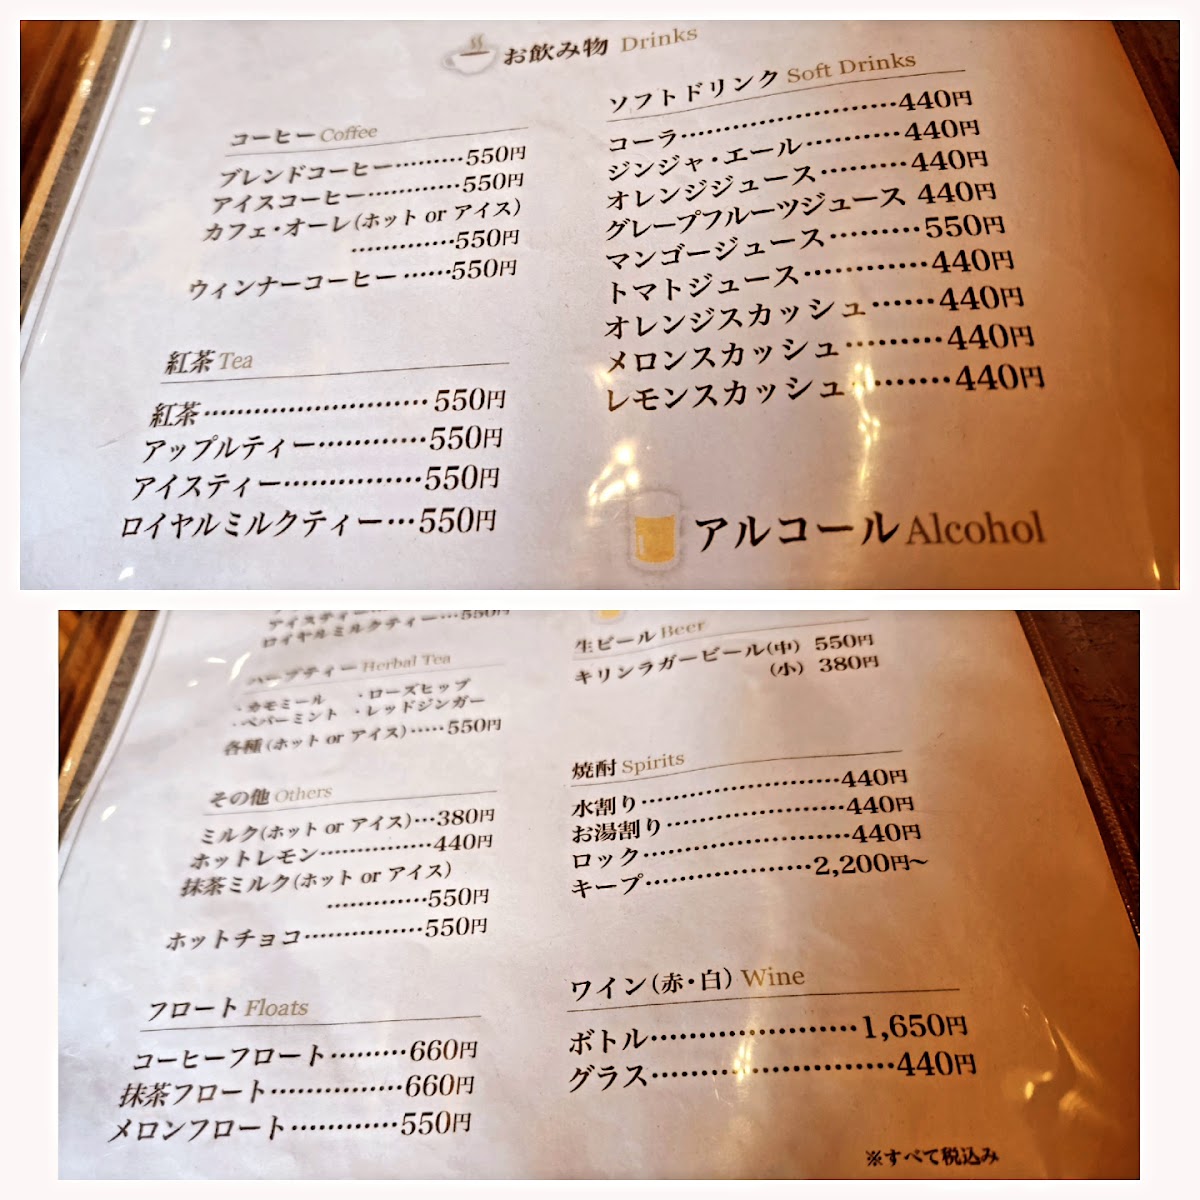 お飲み物 Drinks
コーヒー Coffee
ブレンドコーヒー………550円
アイスコーヒー…………550円
カフェ・オーレ(ホット or アイス)
…………550円
ウィンナーコーヒー……550円
紅茶 Tea
紅茶………………………550円
アップルティー…………550円
アイスティー……………550円
ロイヤルミルクティー…550円
ソフトドリンク Soft Drinks
コーラ……………………440円
ジンジャ・エール………440円
オレンジジュース………440円
グレープフルーツジュース 440円
マンゴージュース………550円
トマトジュース…………440円
オレンジスカッシュ……440円
メロンスカッシュ………440円
レモンスカッシュ………440円
アルコール Alcohol
アイスティー
ロイヤルミルクティー…550円
ハーブティー Herbal Tea
・カモミール ・ローズヒップ
・ペパーミント ・レッドジンガー
各種(ホット or アイス)……550円
その他 Others
ミルク(ホット or アイス)…380円
ホットレモン……………440円
抹茶ミルク(ホット or アイス)
…………550円
ホットチョコ……………550円
フロート Floats
コーヒーフロート………660円
抹茶フロート……………660円
メロンフロート…………550円
生ビール Beer
キリンラガービール(中) 550円
(小) 380円
焼酎 Spirits
水割り……………………440円
お湯割り…………………440円
ロック……………………440円
キープ…………………2,200円〜
ワイン(赤・白) Wine
ボトル…………………1,650円
グラス……………………440円
※すべて税込み